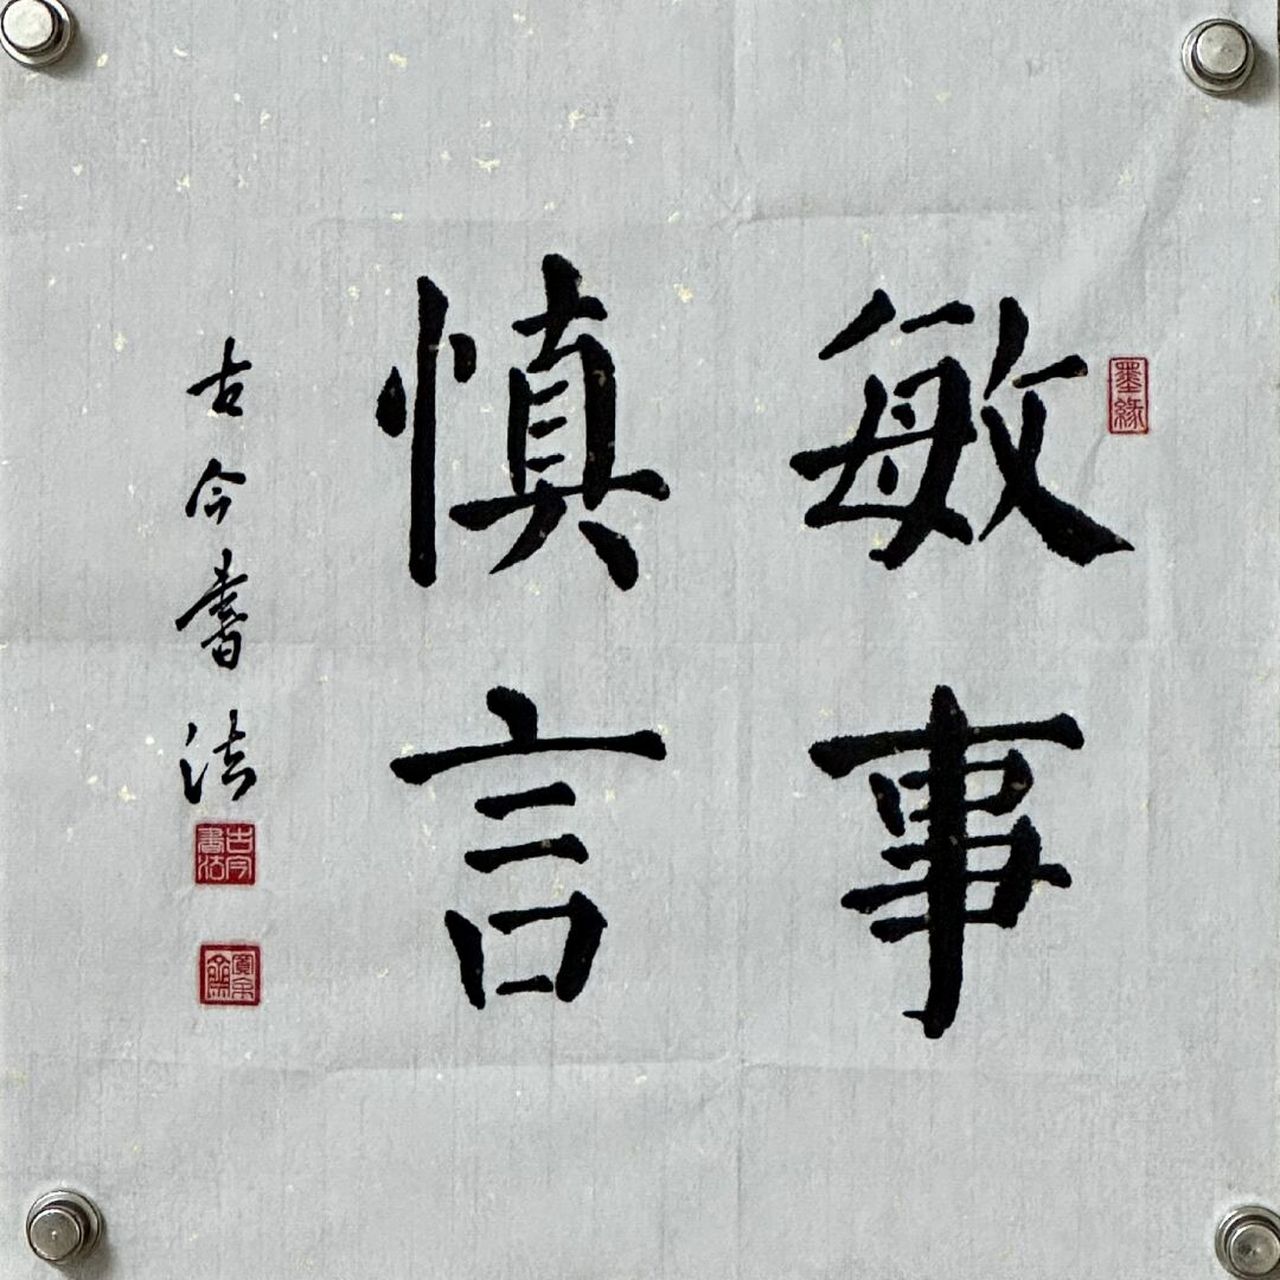 敏事
慎言
古今書法
墨緣
古今書法